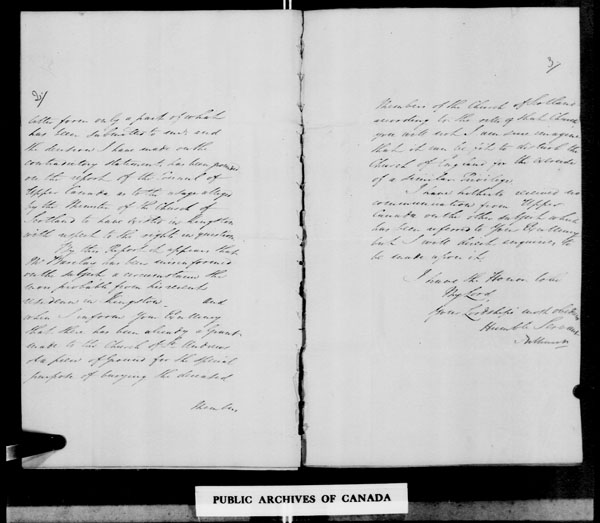 2/
letter form only a part of what
has been submitted to me, and
the decision I have made on the
contradictory statements, has been
on the report of the Council of
Upper Canada as to the usage alleged
by the Minister of the Church of
Scotland to have existed in Kingston
with respect to the rights in question
By this Report it appears that
Mr Barclay has been misinformed
on the subject a circumstance the
more probable from his recent
residence in Kingston. and
when I inform Your
that there has been already a grant
made to the Church of St Andrews
of a piece of Ground for the special
purpose of burying the deceased
Members
3/
Members of the Church of Scotland
according to the rites of that Church
you will not I am sure imagine
that it can be to disturb the
Church of England in the
of a similar Privilege.
I have hitherto received no
communication from Upper
Canada on the other subject which
has been referred to Your
but I will direct enquiries to
be made upon it.
I have the Honor to be
My Lord
Your Lordship's most obedient
Humble Servant
PUBLIC ARCHIVES OF CANADA